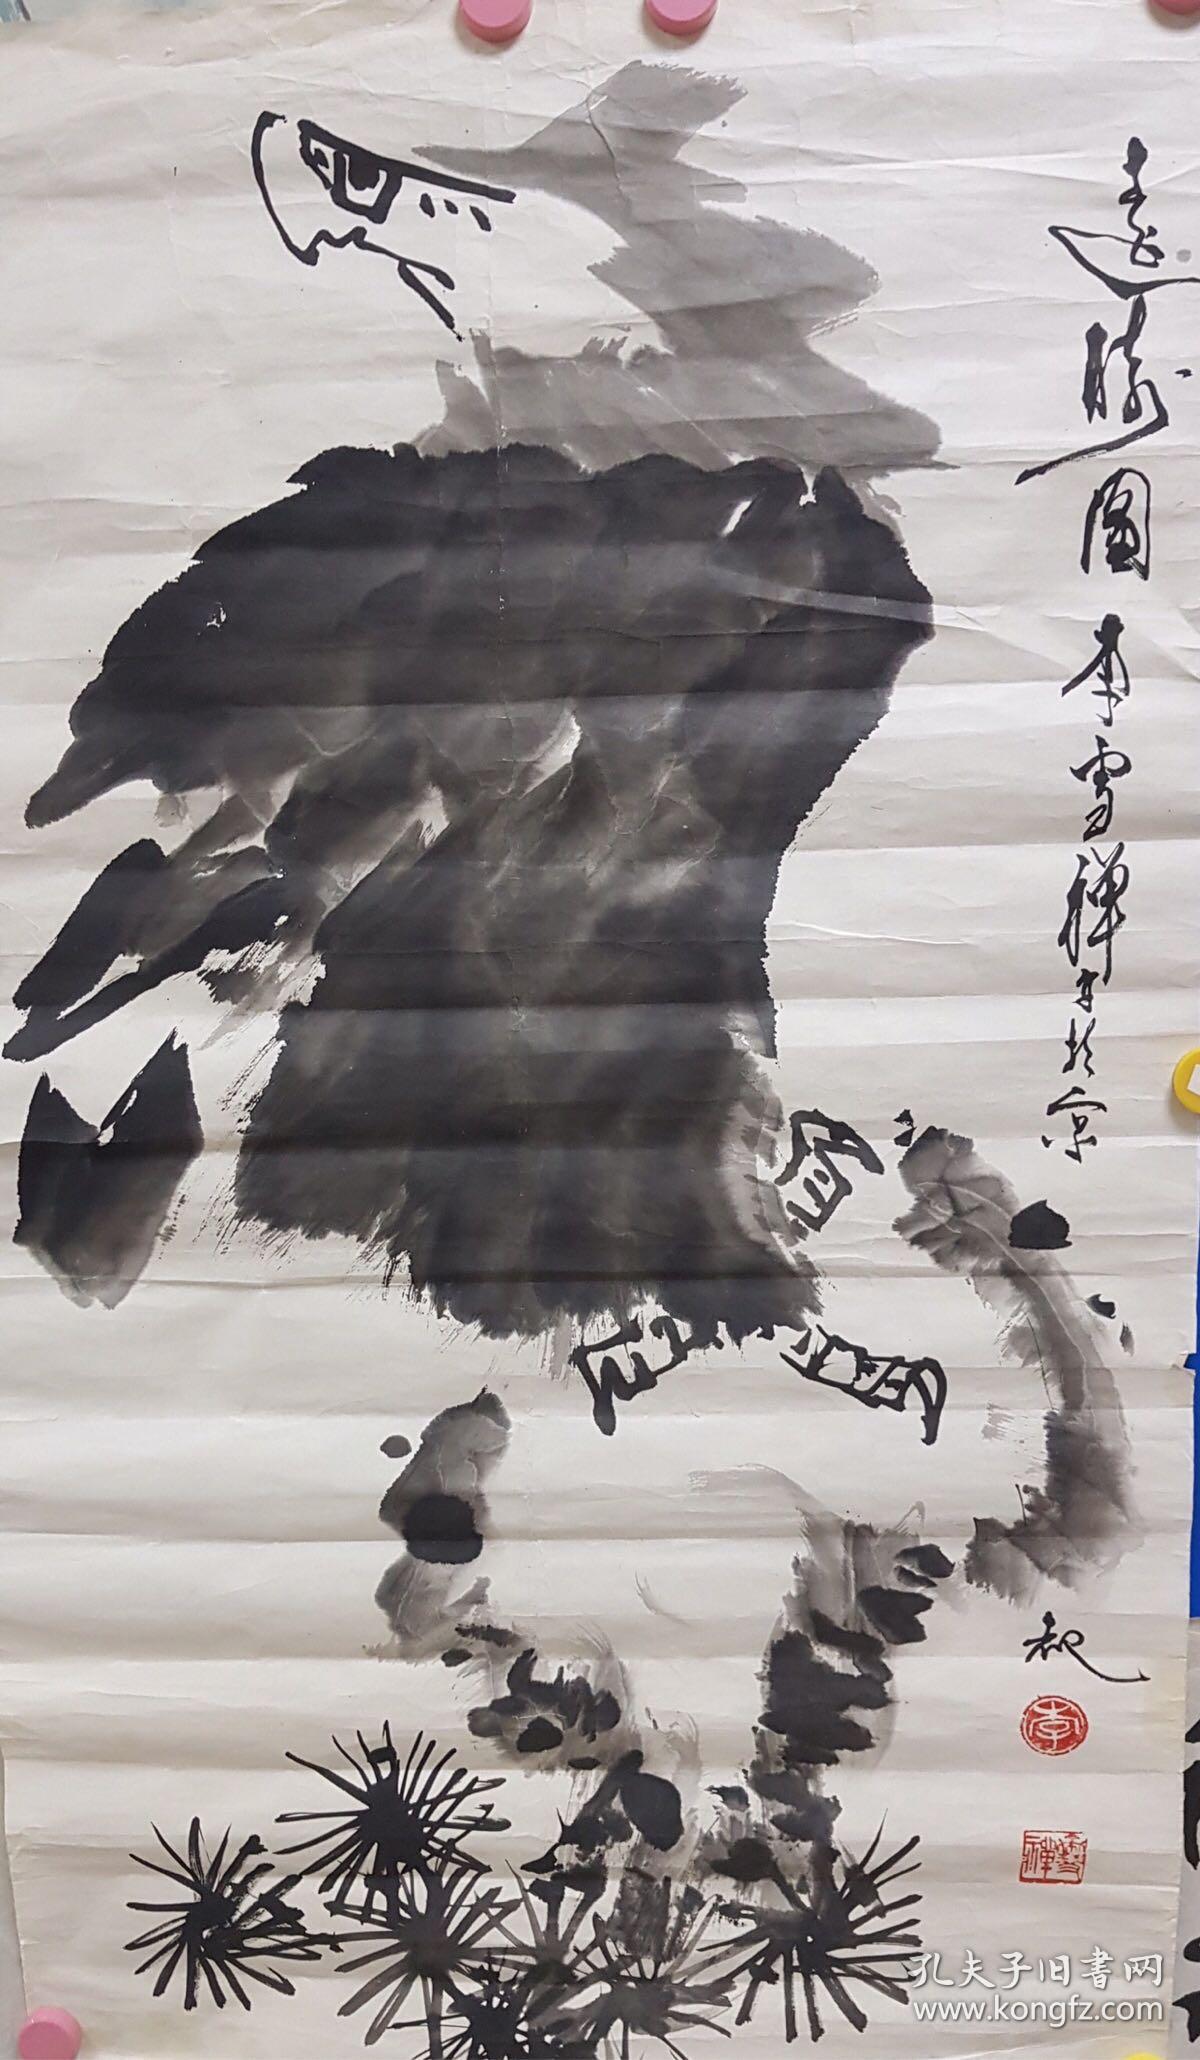 远瞻图 李雪禅写于京
秋
李
雪禅
孔夫子旧書网
www.kongfz.com